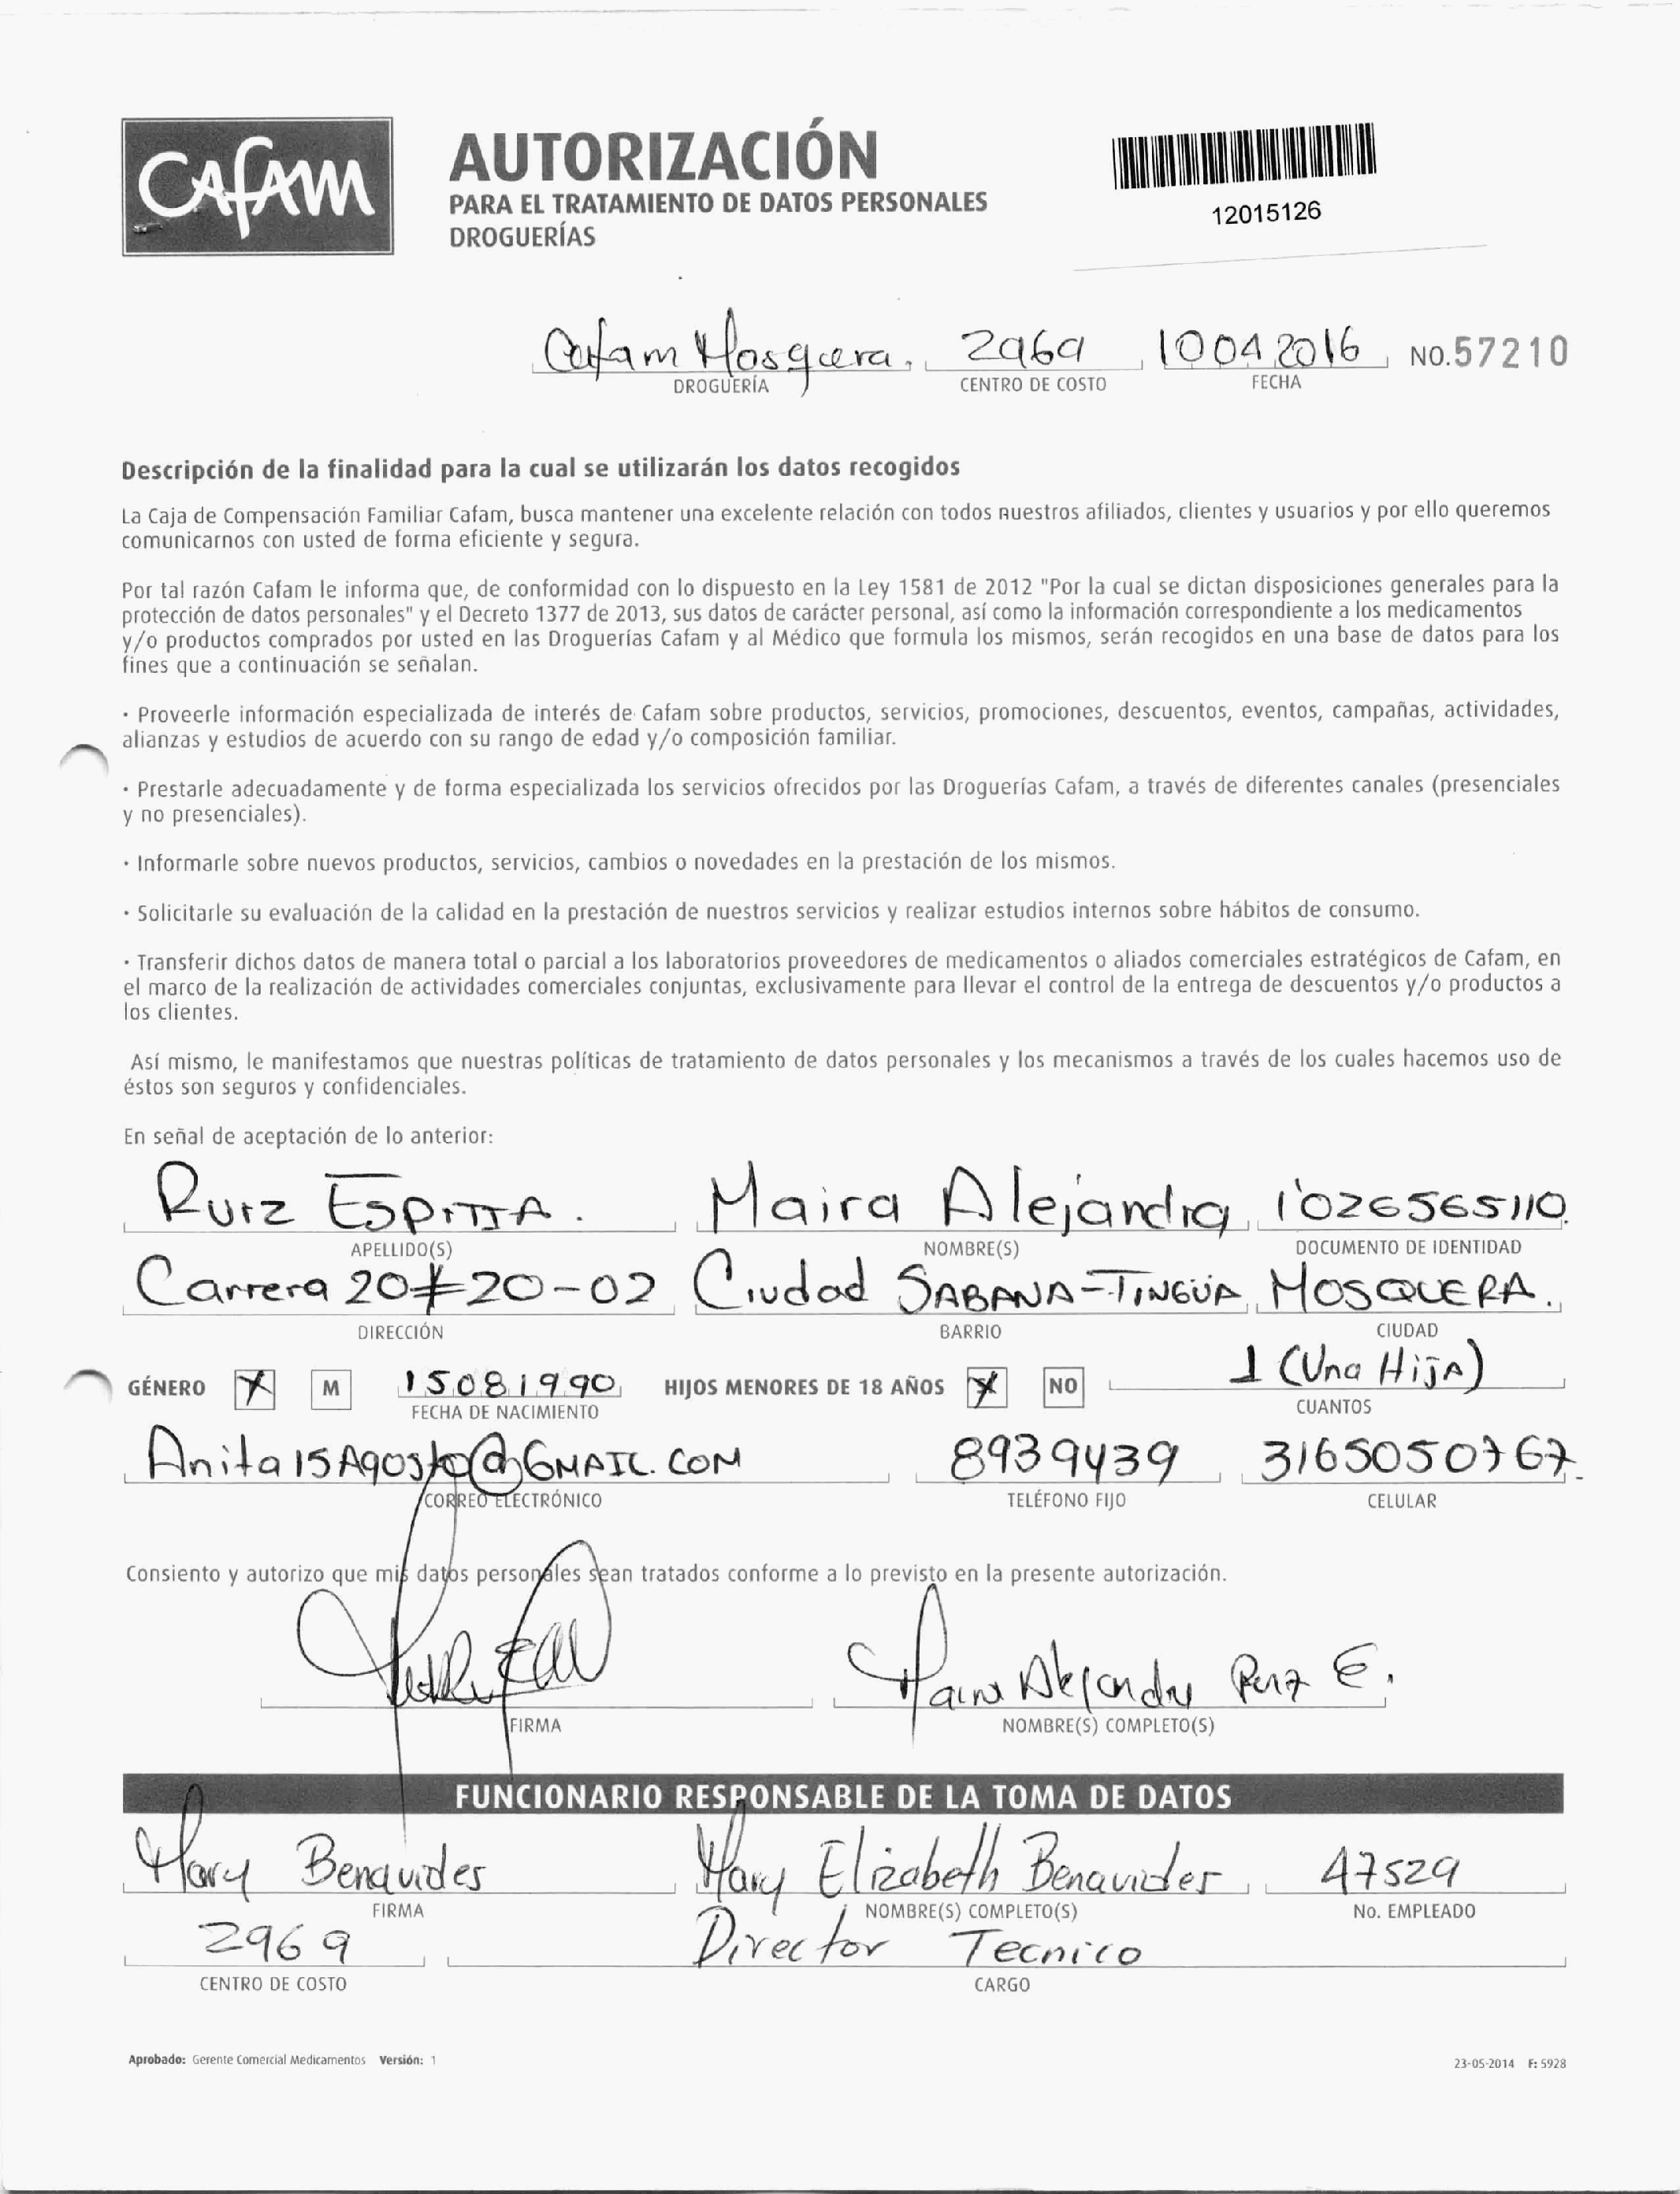 CAFAM
AUTORIZACIÓN
PARA EL TRATAMIENTO DE DATOS PERSONALES
DROGUERÍAS
12015126
Cafam Mosquera. 2969 10042016 NO.57210
DROGUERÍA CENTRO DE COSTO FECHA
Descripción de la finalidad para la cual se utilizarán los datos recogidos
La Caja de Compensación Familiar Cafam, busca mantener una excelente relación con todos nuestros afiliados, clientes y usuarios y por ello queremos
comunicarnos con usted de forma eficiente y segura.
Por tal razón Cafam le informa que, de conformidad con lo dispuesto en la Ley 1581 de 2012 "Por la cual se dictan disposiciones generales para la
protección de datos personales" y el Decreto 1377 de 2013, sus datos de carácter personal, así como la información correspondiente a los medicamentos
y/o productos comprados por usted en las Droguerías Cafam y al Médico que formula los mismos, serán recogidos en una base de datos para los
fines que a continuación se señalan.
· Proveerle información especializada de interés de Cafam sobre productos, servicios, promociones, descuentos, eventos, campañas, actividades,
alianzas y estudios de acuerdo con su rango de edad y/o composición familiar.
· Prestarle adecuadamente y de forma especializada los servicios ofrecidos por las Droguerías Cafam, a través de diferentes canales (presenciales
y no presenciales).
· Informarle sobre nuevos productos, servicios, cambios o novedades en la prestación de los mismos.
· Solicitarle su evaluación de la calidad en la prestación de nuestros servicios y realizar estudios internos sobre hábitos de consumo.
· Transferir dichos datos de manera total o parcial a los laboratorios proveedores de medicamentos o aliados comerciales estratégicos de Cafam, en
el marco de la realización de actividades comerciales conjuntas, exclusivamente para llevar el control de la entrega de descuentos y/o productos a
los clientes.
Así mismo, le manifestamos que nuestras políticas de tratamiento de datos personales y los mecanismos a través de los cuales hacemos uso de
éstos son seguros y confidenciales.
En señal de aceptación de lo anterior:
Ruiz Espitia. Maira Alejandra 1'026565110.
APELLIDO(S) NOMBRE(S) DOCUMENTO DE IDENTIDAD
Carrera 20#20-02 Ciudad SABANA-TINGÜA MOSQUERA.
DIRECCIÓN BARRIO CIUDAD
GÉNERO X M 15081990 HIJOS MENORES DE 18 AÑOS X NO 1 (Una Hija)
FECHA DE NACIMIENTO CUANTOS
Anita15Agosto@GMAIL.COM 8939439 3165050767.
CORREO ELECTRÓNICO TELÉFONO FIJO CELULAR
Consiento y autorizo que mis datos personales sean tratados conforme a lo previsto en la presente autorización.
Maira Alejandra Ruiz E.
FIRMA NOMBRE(S) COMPLETO(S)
FUNCIONARIO RESPONSABLE DE LA TOMA DE DATOS
Mary Benavides Mary Elizabeth Benavides 47529
FIRMA NOMBRE(S) COMPLETO(S) No. EMPLEADO
2969 Director Tecnico
CENTRO DE COSTO CARGO
Aprobado: Gerente Comercial Medicamentos Versión: 1 23-05-2014 F: 5928